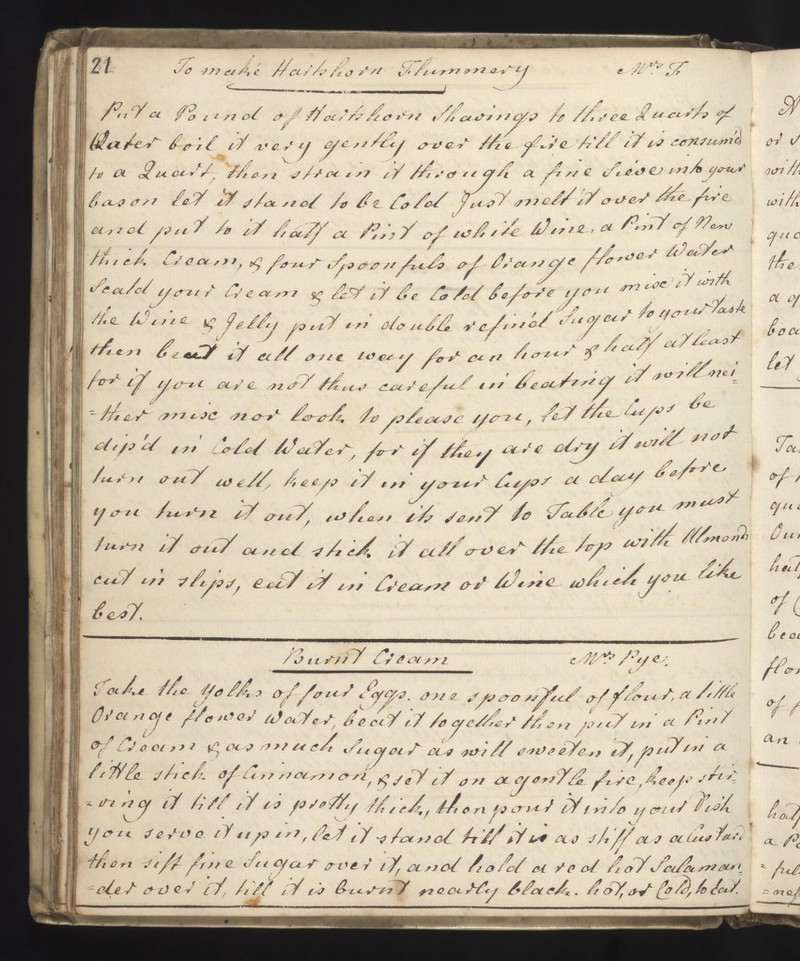 21
To make Hartshorn Flummery Mrs F
Put a Pound of Hartshorn Shavings to three Quarts of
Water boil it very gently over the fire till it is consum'd
to a Quart, then strain it through a fine Sieve into your
bason let it stand to be Cold Just melt it over the fire
and put to it half a Pint of white Wine, a Pint of New
thick Cream, & four Spoonfuls of Orange flower Water
Scald your Cream & let it be Cold before you mixe it with
the Wine & Jelly put in double refin'd Sugar to your Taste
then beat it all one way for an hour & half at least
for if you are not thus careful in beating it will nei=
=ther mixe nor look to please you, let the Cups be
dip'd in Cold Water, for if they are dry it will not
turn out well, keep it in your Cups a day before
you turn it out, when its sent to Table you must
turn it out and stick it all over the top with Almonds
cut in slips, eat it in Cream or Wine which you like
best.
Burnt Cream Mrs Pye.
Take the Yolks of four Eggs. one spoonful of flour, a little
Orange flower Water, beat it together then put in a Pint
of Cream & as much Sugar as will sweeten it, put in a
little stick of Cinnamon, & set it on a gentle fire, keep stir=
=ring it till it is pretty thick, then pour it into your Dish
you serve it up in, let it stand till it is as stiff as a Custard
then sift fine Sugar over it, and hold a red hot Salaman=
=der over it, till it is burnt nearly black. hot, or Cold, to Eat.
or
with
with
the
let
of
Our
of
of
an
half